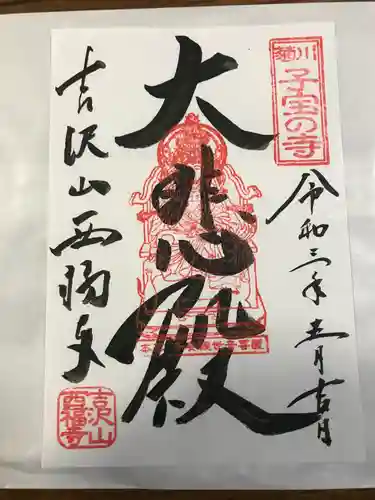 菊川
子宝の寺
令和三年五月吉日
大悲殿
吉沢山西福寺
吉沢山
西福寺